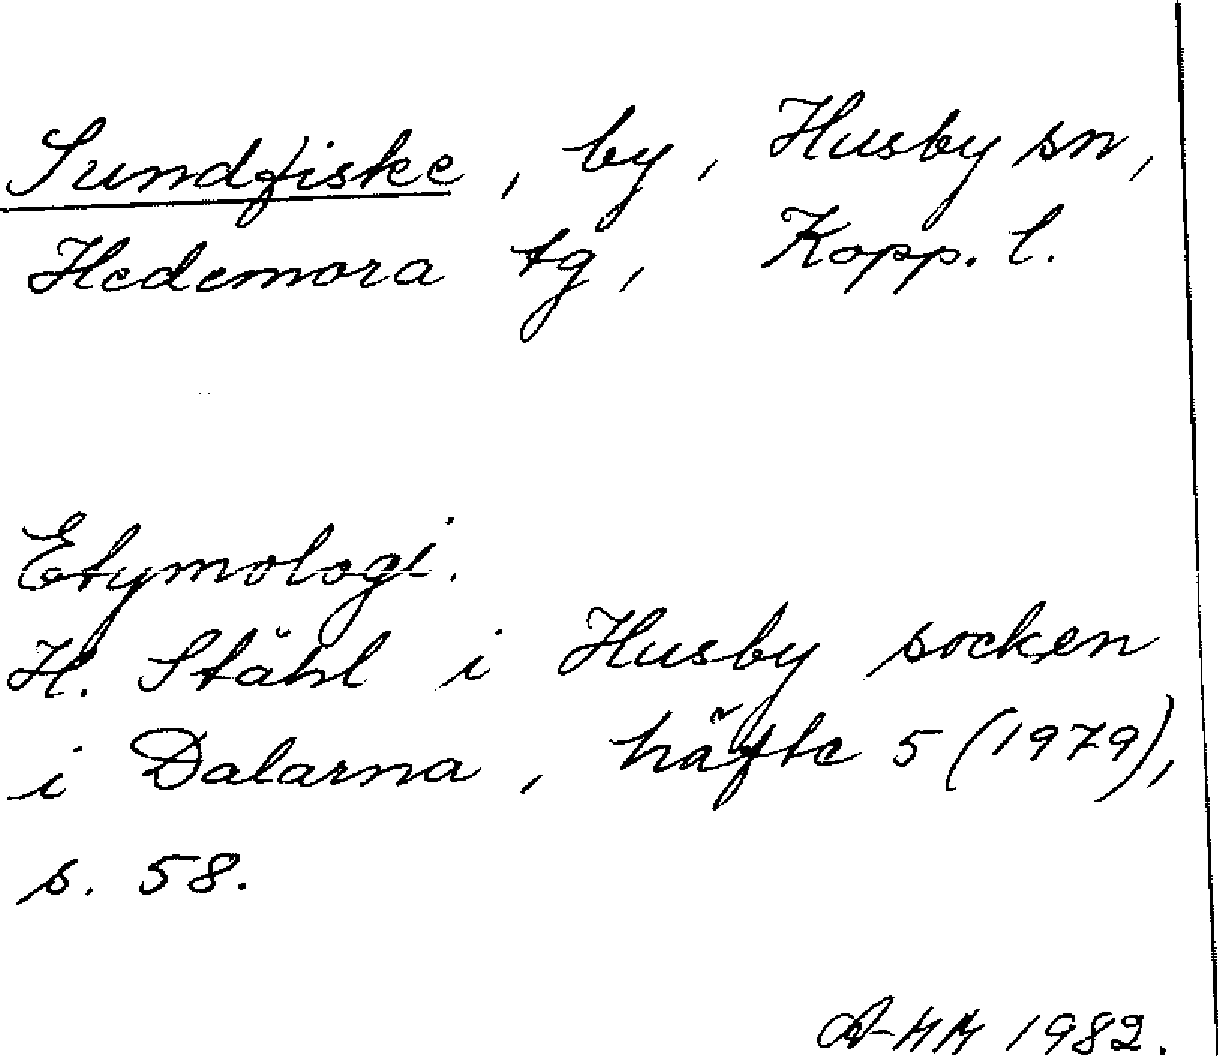 Sundfiske, by, Husby sn,
Hedemora tg, Kopp. l.
Etymologi.
H. Ståhl i Husby socken
i Dalarna, häfte 5 (1979),
s. 58.
1982.